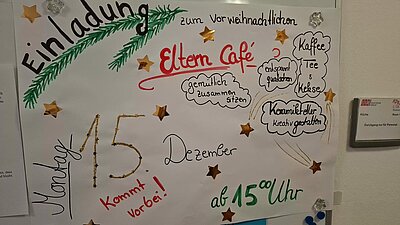 Einladung
zum Vorweihnachtlichen
Eltern Café
Kaffee
Tee
&
Kekse
entspannt
quatschen
gemütlich
zusammen
sitzen
Keramikteller
kreativ gestalten
Montag 15. Dezember
Kommt
vorbei!
ab 15⁰⁰ Uhr